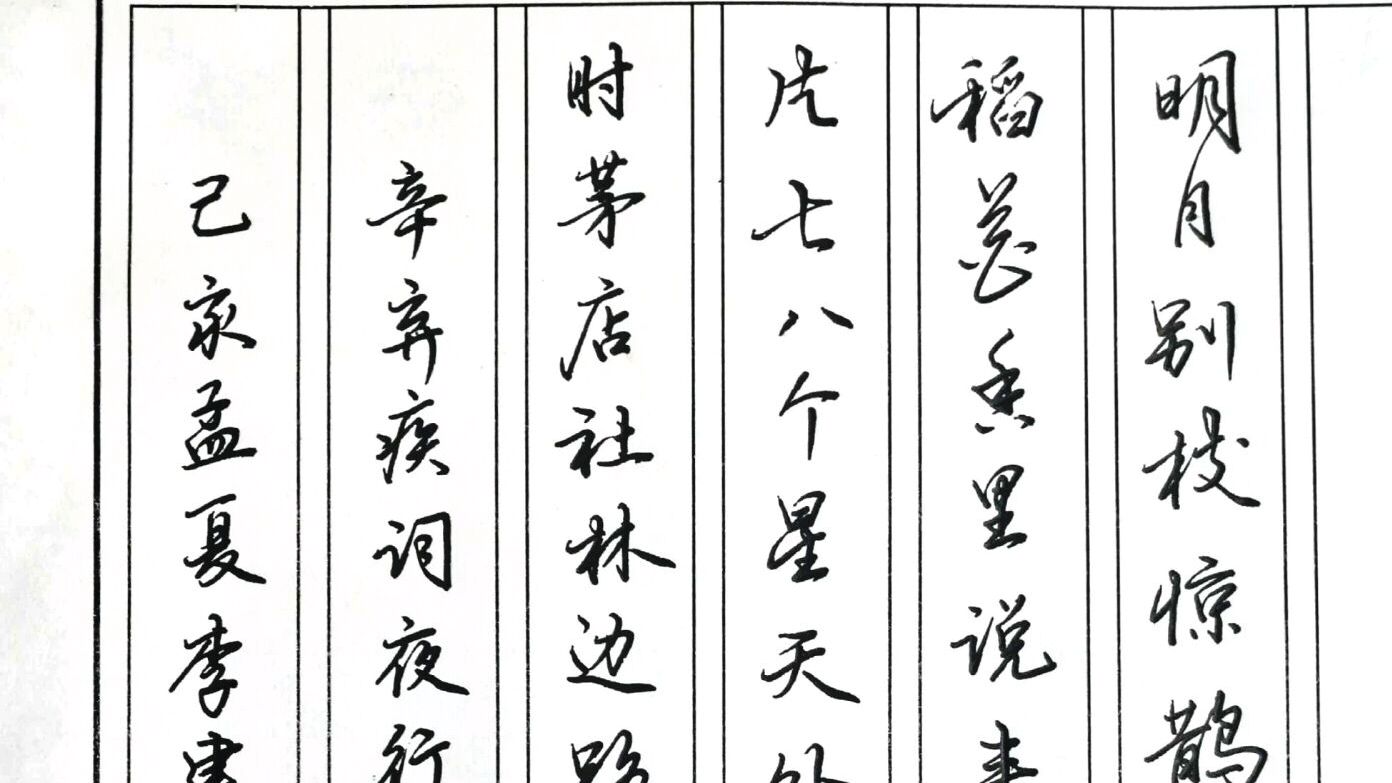 明月别枝惊鹊
稻花香里说丰
片七八个星天外
时茅店社林边路
辛弃疾词夜行
己亥孟夏李